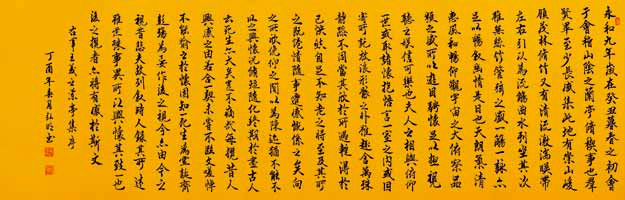 永和九年歲在癸丑暮春之初會
于會稽山陰之蘭亭脩稧事也羣
賢畢至少長咸集此地有崇山峻
領茂林脩竹又有清流激湍暎帶
左右引以為流觴曲水列坐其次
雖無絲竹管絃之盛一觴一詠亦
足以暢敘幽情是日也天朗氣清
惠風和暢仰觀宇宙之大俯察品
類之盛所以遊目騁懷足以極視
聽之娛信可樂也夫人之相與俯仰
一世或取諸懷抱悟言一室之內或因
寄所託放浪形骸之外雖趣舍萬殊
靜躁不同當其欣於所遇暫得於
己快然自足不知老之將至及其所
之既惓情隨事遷感慨係之矣向
之所欣俛仰之間以為陳迹猶不能不
以之興懷況脩短隨化終期於盡古人
云死生亦大矣豈不痛哉每攬昔人
興感之由若合一契未嘗不臨文嗟悼
不能喻之於懷固知死生為虛誕齊
彭殤為妄作後之視今亦由今之
視昔悲夫故列敘時人錄其所述
雖世殊事異所以興懷其致一也
後之攬者亦將有感於斯文
右晉王羲之蘭亭集序
丁酉年